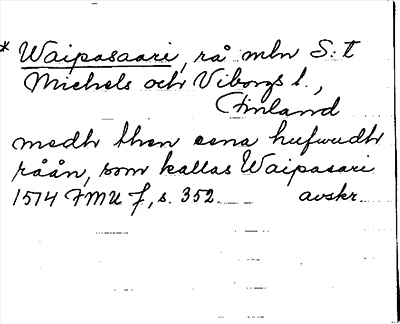 * Waipasaari, rå mln S:t
Michels och Viborgs l.,
Finland
medh then eena hufwudh
råån, som kallas Waipasari
1514 FMU f, s. 352. avskr.